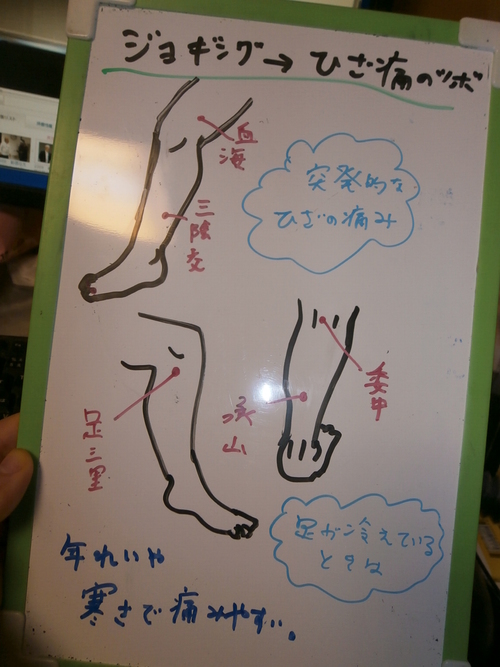 ジョギング→ひざ痛のツボ
血海
突発的な
ひざの痛み
三陰交
委中
承山
足三里
足が冷えている
ときは
年れいや
寒さで痛みやすい。